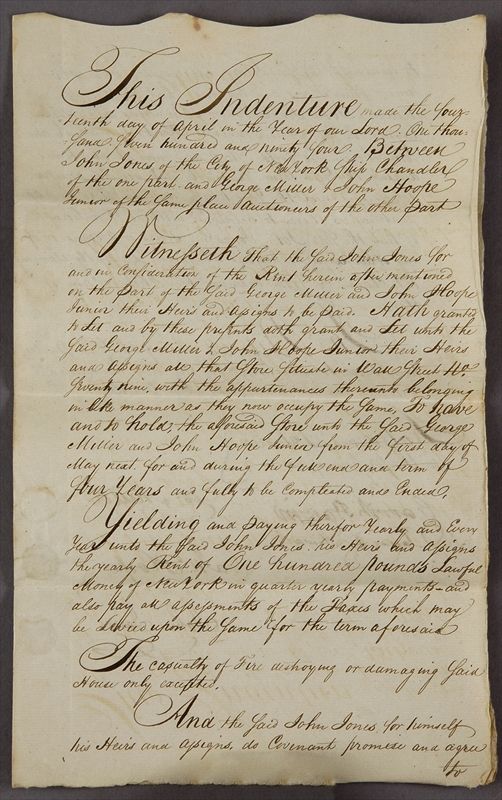 This Indenture made the four-
teenth day of April in the Year of our Lord One thou-
-sand Seven hundred and ninety four Between
John Jones of the City of New York Ship Chandler
of the one part and George Miller & John Hoope
Junior of the same place Auctioners of the other Part
Witnesseth That the Said John Jones for
and in Consideration of the Rent herein after mentioned
on the Part of the Said George Miller and John Hoope
Junior their Heirs and assigns to be paid. Hath granted
to Let and by these presents doth grant and Let unto the
Said George Miller & John Hoope Junior their Heirs
and assigns all that Store Situate in Wall Street No
Seventy nine, with the appurtenances thereunto belonging
in like manner as they now occupy the Same, To have
and to hold the aforesaid Store unto the Said George
Miller and John Hoope Junior from the first day of
May next for and during the full end and term of
four Years and fully to be Compleated and Ended.
Yielding and Paying therefor Yearly and Every
Year unto the Said John Jones his Heirs and assigns
the yearly Rent of One hundred pounds Lawful
Money of New York in quarter yearly payments - and
also pay all assessments of the Taxes which may
be Levied upon the Same for the term aforesaid
The casualty of Fire destroying or damaging Said
House only excepted.
And the Said John Jones for himself
his Heirs and assigns, do Covenant promise and agree
to